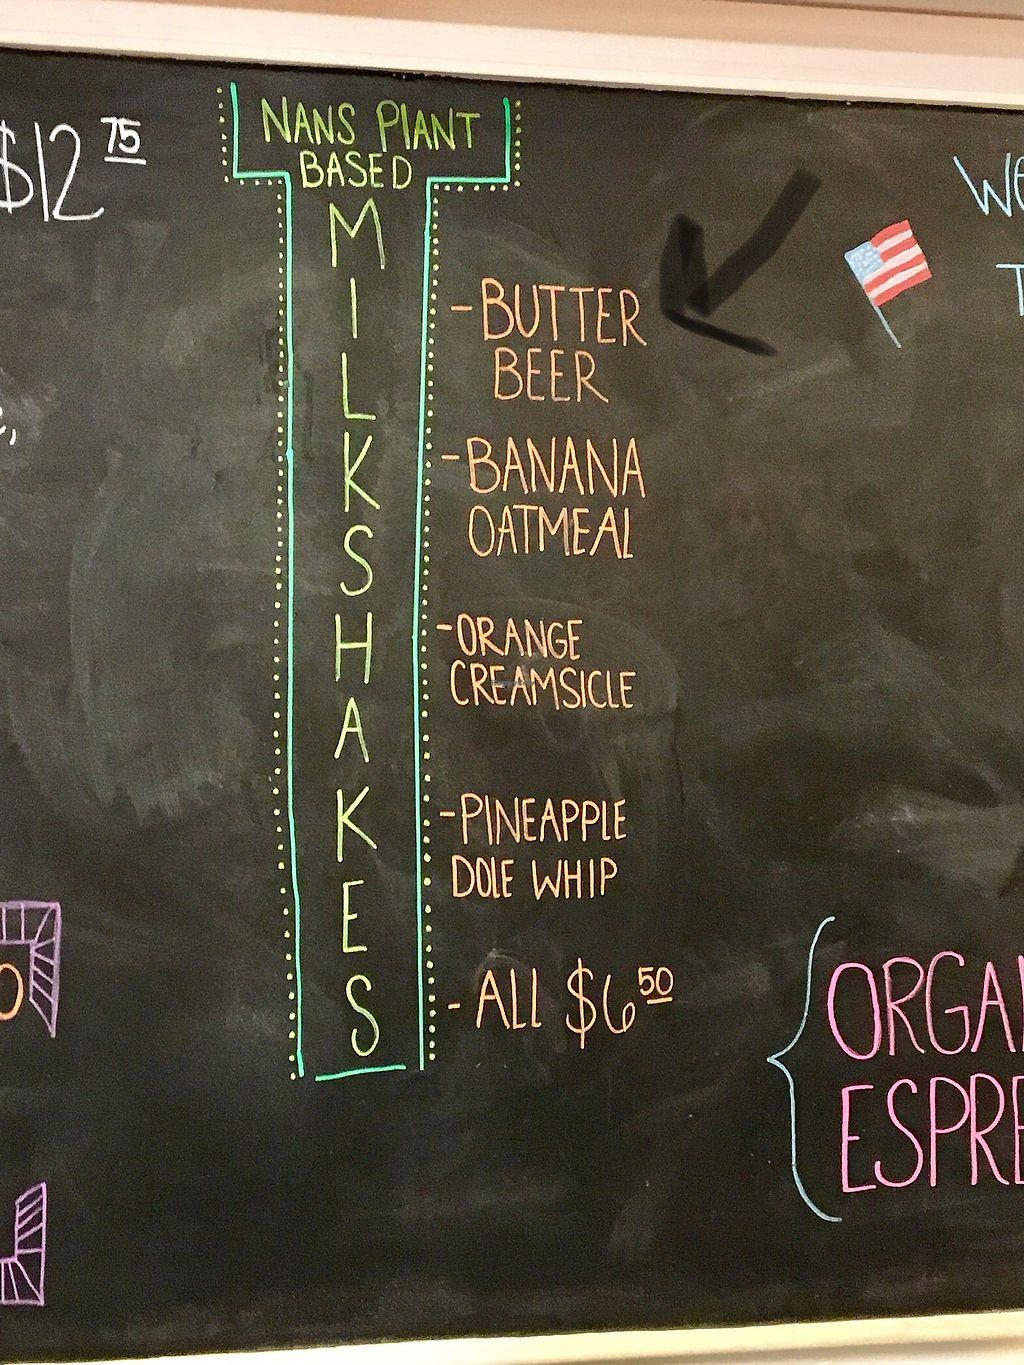 $12 75
NANS PlANT
BASED
MILKSHAKES
-BUTTER
BEER
-BANANA
OATMEAL
-ORANGE
CREAMSICLE
-PINEAPPLE
DOlE WHIP
-All $6 50
ORGA
ESPRE
WE
T